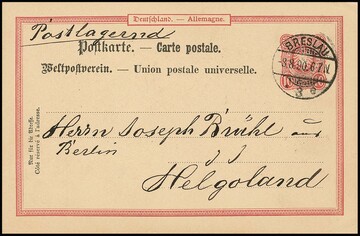 Deutschland. — Allemagne.
Postlagernd
Postkarte. — Carte postale.
Weltpostverein. — Union postale universelle.
BRESLAU
Nur für die Adresse.
Côté réservé à l'adresse.
Herrn Joseph Brühl aus
Berlin
Helgoland